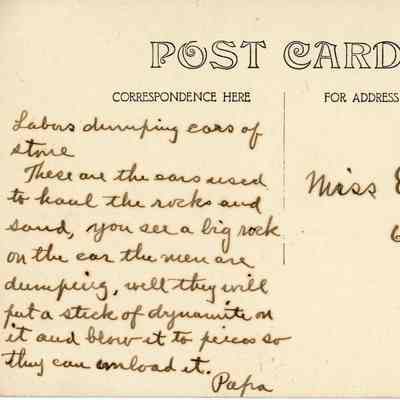 POST CARD
CORRESPONDENCE HERE
FOR ADDRESS
Labors dumping cars of
stone
These are the cars used
to haul the rocks and
sand, you see a big rock
on the car the men are
dumping, well they will
put a stick of dynamite on
it and blow it to pieces so
they can unload it.
Papa
Miss